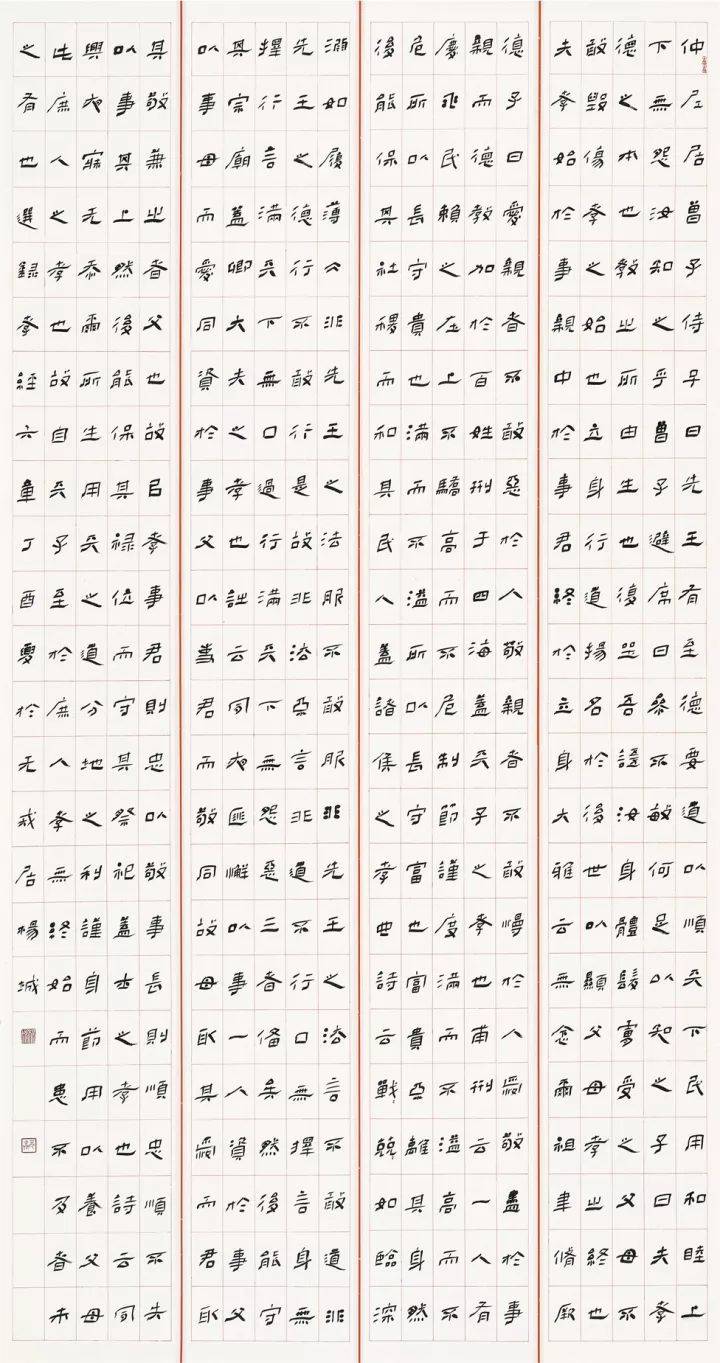 仲尼居曾子侍子曰先王有至德要道以順天下民用和睦上
下無怨汝知之乎曾子避席曰參不敏何足以知之子曰夫孝
德之本也教之所由生也復坐吾語汝身體髮膚受之父母不
敢毀傷孝之始也立身行道揚名於後世以顯父母孝之終也
夫孝始於事親中於事君終於立身大雅云無念爾祖聿脩厥
德子曰愛親者不敢惡於人敬親者不敢慢於人愛敬盡於事
親而德教加於百姓刑于四海蓋天子之孝也甫刑云一人有
慶兆民賴之在上不驕高而不危制節謹度滿而不溢高而不
危所以長守貴也滿而不溢所以長守富也富貴不離其身然
後能保其社稷而和其民人蓋諸侯之孝也詩云戰兢如臨深
淵如履薄冰非先王之法服不敢服非先王之法言不敢道非
先王之德行不敢行是故非法不言非道不行口無擇言身無
擇行言滿天下無口過行滿天下無怨惡三者備矣然後能守
其宗廟蓋卿大夫之孝也詩云夙夜匪懈以事一人資於事父
以事母而愛同資於事父以事君而敬同故母取其愛而君取
其敬兼之者父也故以孝事君則忠以敬事長則順忠順不失
以事其上然後能保其祿位而守其祭祀蓋士之孝也詩云夙
興夜寐无忝爾所生用天之道分地之利謹身節用以養父母
此庶人之孝也故自天子至於庶人孝無終始而患不及者未
之有也選錄孝經六章丁酉夏於无戒居楊城